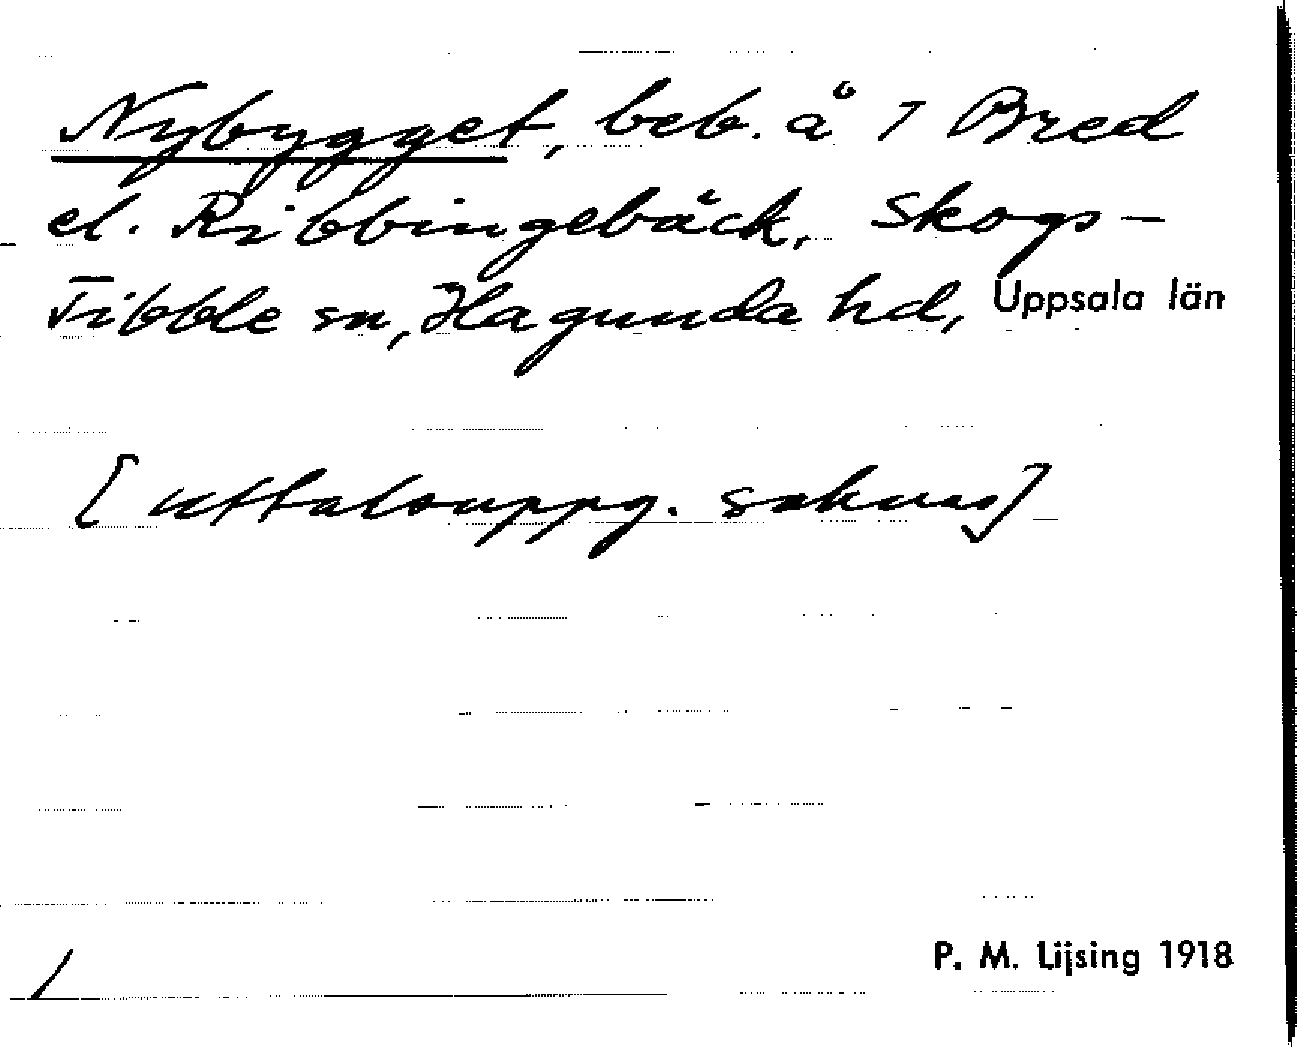 Nybygget, beb. å 7 Bred
el. Ribbingebäck, Skogs-
Tibble sn, Hagunda hd, Uppsala län
[uttalsuppg. saknas]
P. M. Lijsing 1918